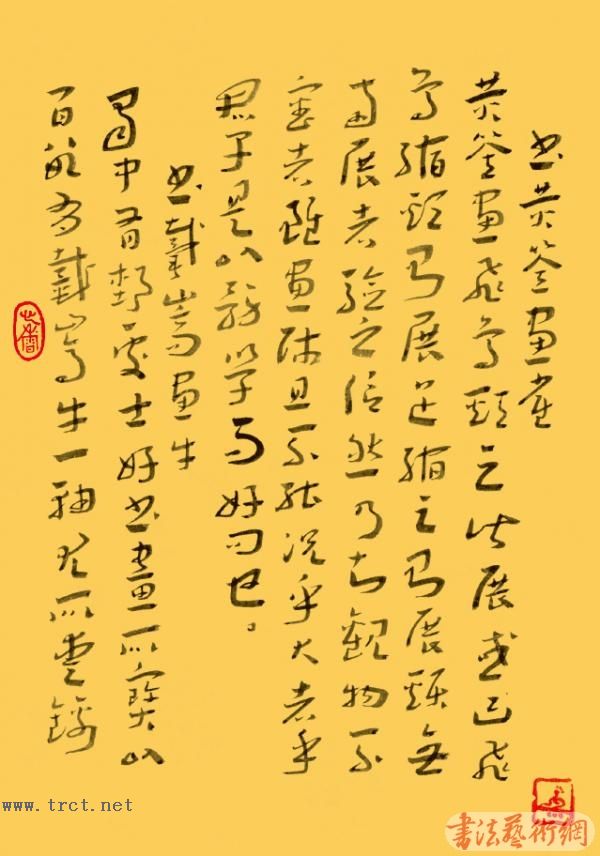 书黄筌畫雀
黄筌畫飞鸟颈足皆展或曰飞
鸟缩颈则展足缩足则展颈無
两展者验之信然乃知觀物不
审者雖畫师且不能况乎大者乎
君子是以務学而好问也。
书戴嵩畫牛
蜀中有杜處士好书畫所宝以
百数有戴嵩牛一轴尤所爱錦
www.trct.net
書法藝術網